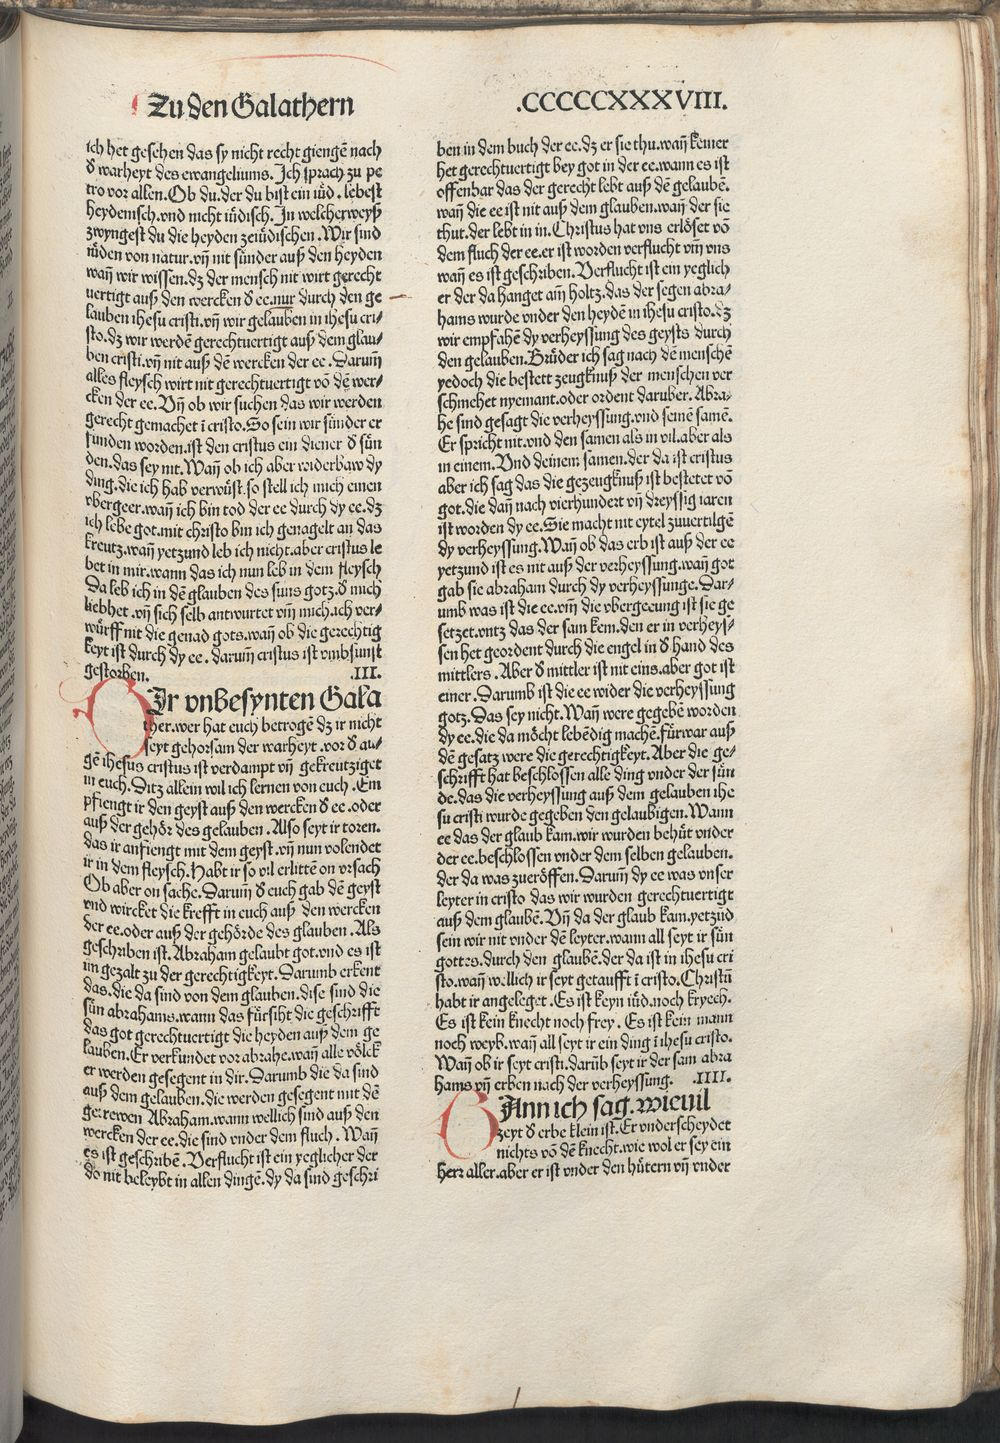 Zu den Galathern
.CCCCCXXXVIII.
ich het gesehen das sy nicht recht giengē nach
d̕ warheyt des ewangeliums. Ich sprach zu pe
tro vor allen. Ob du. der du bist ein iud . lebest
heydenisch. vnd nicht iüdisch. In welcherweyß
zwyngest du die heyden zeiüdischen . Wir sind
iüden von natur. vn̄ nit sünder auß den heyden
wan̄ wir wissen. dz der mensch nit wirt gerecht
uertigt auß den wercken d̕ ee. nur durch den ge
lauben ihesu cristi. vn̄ wir gelauben in ihesu cri⸗
sto. dz wir werdē gerechtuertigt auß dem glau⸗
ben cristi. vn̄ nit auß dē wercken der ee . Darum̄
alles fleysch wirt nit gerechtuertigt vō dē wer⸗
cken der ee. Vn̄ ob wir suchen das wir werden
gerecht gemachet ī cristo. So sein wir sünder er
funden worden. ist den cristus ein diener d̕ sün
den. das sey nit. Wan̄ ob ich aber widerbaw dy
ding. die ich hab verwüst. so stell ich mich einen
vbergeer. wan̄ ich bin tod der ee durch dy ee. dz
ich lebe got. mit christo bin ich genagelt an das
kreutz. wan̄ yetzund leb ich nicht. aber cristus le
bet in mir. wann das ich nun leb in dem fleysch
Da leb ich in dē glauben des suns gotz. d̕ mich
liebhet . vn̄ sich selb antwurtet vm̄ mich. ich ver⸗
würff nit die genad gots. wan̄ ob die gerechtig
keyt ist durch dy ee . darum̄ cristus ist vmbsunst
gestorben. .III.
OIr vnbesynten Gala
ther. wer hat euch betrogē dz ir nicht
seyt gehorsam der warheyt . vor d̕ au⸗
gē ihesus cristus ist verdampt vn̄ gekreutziget
in euch. Ditz allein wil ich lernen von euch . Em
pfiengt ir den geyst auß den wercken d̕ ee . oder
auß der gehör des gelauben . Also seyt ir toren.
das ir anfiengt mit dem geyst. vn̄ nun volendet
ir in dem fleysch. Habt ir so vil erlittē on vrsach
Ob aber on sache. Darum̄ d̕ euch gab dē geyst
vnd wircket die krefft in euch auß den wercken
der ee. oder auß der gehörde des glauben . Als
geschriben ist. Abraham gelaubt got. vnd es ist
im gezalt zu der gerechtigkeyt. Darumb erkent
das. die da sind von dem glauben. dise sind die
sün abrahams. wann das fürsiht die geschrifft
das got gerechtuertigt die heyden auß dem ge
lauben. Er verkundet vor abrahe. wan̄ alle völck
er werden gesegent in dir. Darumb die da sind
auß dem gelauben. die werden gesegent mit dē
getrewen Abraham. wann wellich sind auß den
wercken der ee. die sind vnder dem fluch . Wan̄
es ist geschribē . Verflucht ist ein yeglicher der
do nit beleybt in allen dingē. dy da sind geschri
ben in dem buch der ee. dz er sie thu. wan̄ keiner
het gerechtuertigt bey got in der ee. wann es ist
offenbar das der gerecht lebt auß dē gelaubē.
wan̄ die ee ist nit auß dem glauben. wan̄ der sie
thut. der lebt in in. Christus hat vns erlöset vō
dem fluch der ee. er ist worden verflucht vm̄ vns
wan̄ es ist geschriben. Verflucht ist ein yeglich
er der da hanget am̄ holtz. das der segen abra⸗
hams wurde vnder den heydē in ihesu cristo. dz
wir empfahē dy verheyssung des geysts durch
den gelauben. Brüder ich sag nach dē menschē
yedoch die bestett zeugknuß der menschen ver
schmehet nyemant. oder ordent daruber. Abra⸗
he sind gesagt die verheyssung. vnd seinē samē.
Er spricht nit. vnd den samen als in vil. aber als
in einem. Vnd deinem samen. der da ist cristus
aber ich sag das die gezeugknuß ist bestetet vō
got. die dan̄ nach vierhundert vn̄ dreyssig iaren
ist worden dy ee. Sie macht nit eytel zuuertilgē
dy verheyssung. Wan̄ ob das erb ist auß der ee
yetzund ist es nit auß der verheyssung. wan̄ got
gab sie abraham durch dy verheyssunge. Dar⸗
umb was ist die ee. vm̄ die vbergeeung ist sie ge
setzet. vntz das der sam kem. den er in verheys⸗
sen het geordent durch die engel in d̕ hand des
mittlers . Aber d̕ mittler ist nit eins. aber got ist
einer . Darumb ist die ee wider die verheyssung
gotz. Das sey nicht. Wan̄ were gegebē worden
dy ee. die da möcht lebēdig machē. fürwar auß
dē gesatz were die gerechtigkeyt. Aber die ge⸗
schrifft hat beschlossen alle ding vnder der sün
de. das die verheyssung auß dem gelauben ihe
su cristi wurde gegeben den gelaubigen. Wann
ee das der glaub kam. wir wurden behüt vnder
der ee. beschlossen vnder dem selben gelauben.
der da was zueröffen. Darum̄ dy ee was vnser
leyter in cristo das wir wurden gerechtuertigt
auß dem glaubē. Vn̄ da der glaub kam. yetzūd
sein wir nit vnder dē leyter. wann all seyt ir sün
gottes. durch den glaubē. der da ist in ihesu cri
sto. wan̄ wellich ir seyt getaufft ī cristo. Christū
habt ir angeleget . Es ist keyn iüd. noch kryech.
Es ist kein knecht noch frey . Es ist kein mann
noch weyb. wan̄ all seyt ir ein ding ī ihesu cristo.
Wan̄ ob ir seyt cristi. darūb seyt ir der sam abra
hams vn̄ erben nach der verheyssung. .IIII.
WAnn ich sag. wieuil
zeyt d̕ erbe klein ist. Er vnderscheydet
nichts vō dē knecht. wie wol er sey ein
herr aller. aber er ist vnder den hütern vn̄ vnder